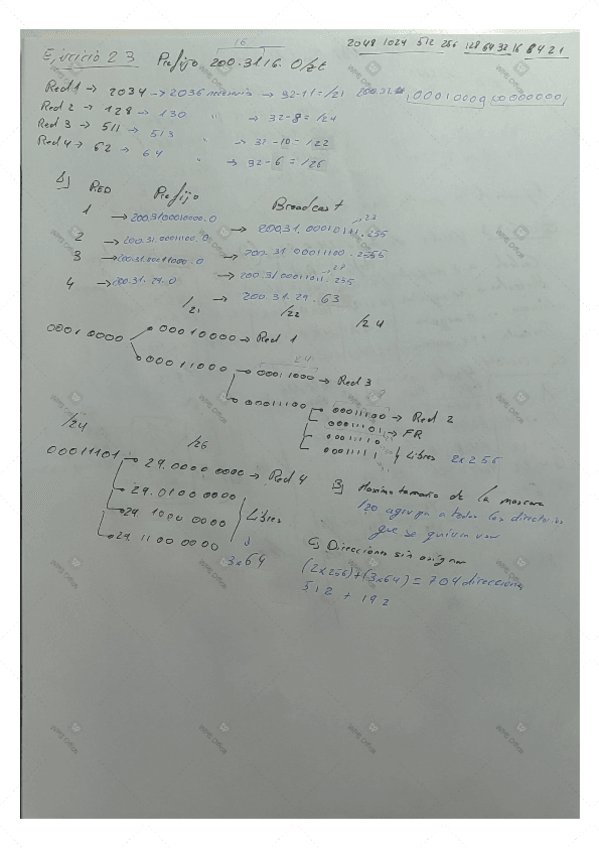 16
2048 1024 512 256 128 64 32 16 8 4 2 1
Ejercicio 23 Prefijo 200.31.16.0/20
Red 1 → 2034 → 2036 necesario → 32-11=/21 200.31. 00010000 00000000
Red 2 → 128 → 130 " → 32-8=/24
Red 3 → 511 → 513 → 32-10=/22
Red 4 → 62 → 64 " → 32-6=/26
A) RED Prefijo Broadcast
23
1 → 200.31.00010000.0 → 200.31.00010111.255
2 → 200.31.00011100.0 → 200.31.00011100.255
3 → 200.31.00011000.0 → 200.31.00011011.255
27
4 → 200.31.29.0 → 200.31.29.63
/21 /22 /24
00010000 00010000 → Red 1
24
00011000 → 00011000 → Red 3
00011100 → 00011100 → Red 2
00011101 → FR
00011110
00011111 Libres 2x256
/24 /26
00011101 29.00000000 → Red 4
29.01000000
29.10000000 Libres
29.11000000
3x64
B) Maximo tamaño de la mascara
/20 agrupa a todas las
que se quieran
C) Direcciones sin asignar
(2x256)+(3x64) = 704 direcciones
512 + 192